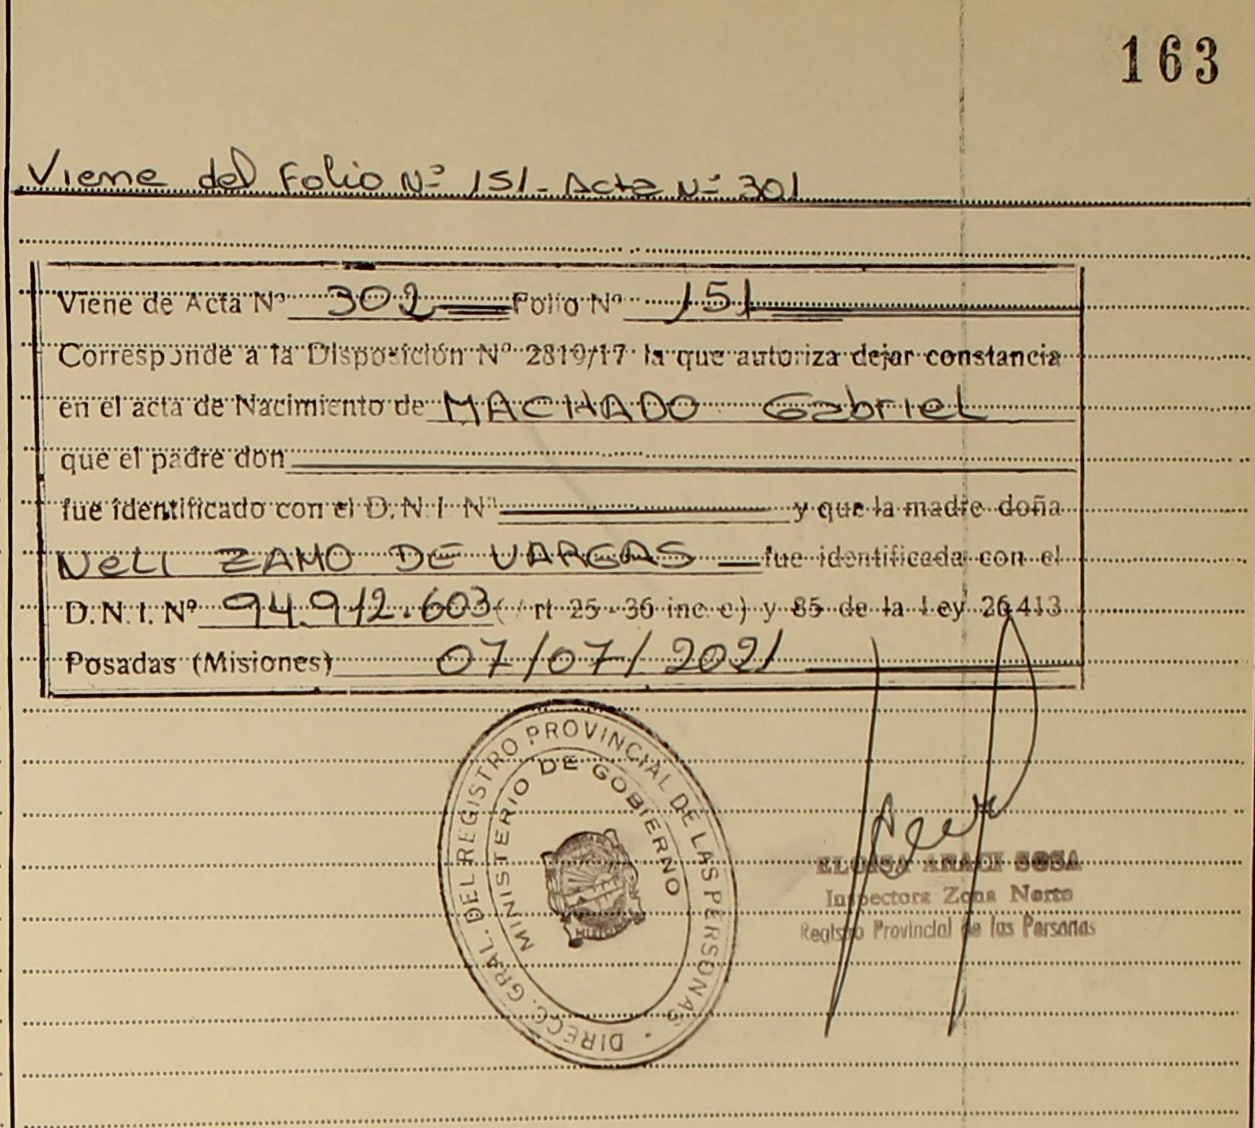 163
Viene del Folio Nº 151 - Acta Nº 301
Viene de Acta Nº 302 Folio Nº 151
Corresponde a la Disposición Nº 2819/17 la que autoriza dejar constancia
en el acta de Nacimiento de MACHADO Gabriel
que el padre don
fue identificado con el D.N.I Nº y que la madre doña
NELI ZAMO DE VARGAS fue identificada con el
D.N.I. Nº 94.912.603 (Art 25 - 36 inc c) y 85 de la Ley 26413
Posadas (Misiones) 07/07/2021
DIRECC. GRAL. DEL REGISTRO PROVINCIAL DE LAS PERSONAS
MINISTERIO DE GOBIERNO
ELOISA ANACI SOSA
Inspectora Zona Norte
Registro Provincial de las Personas